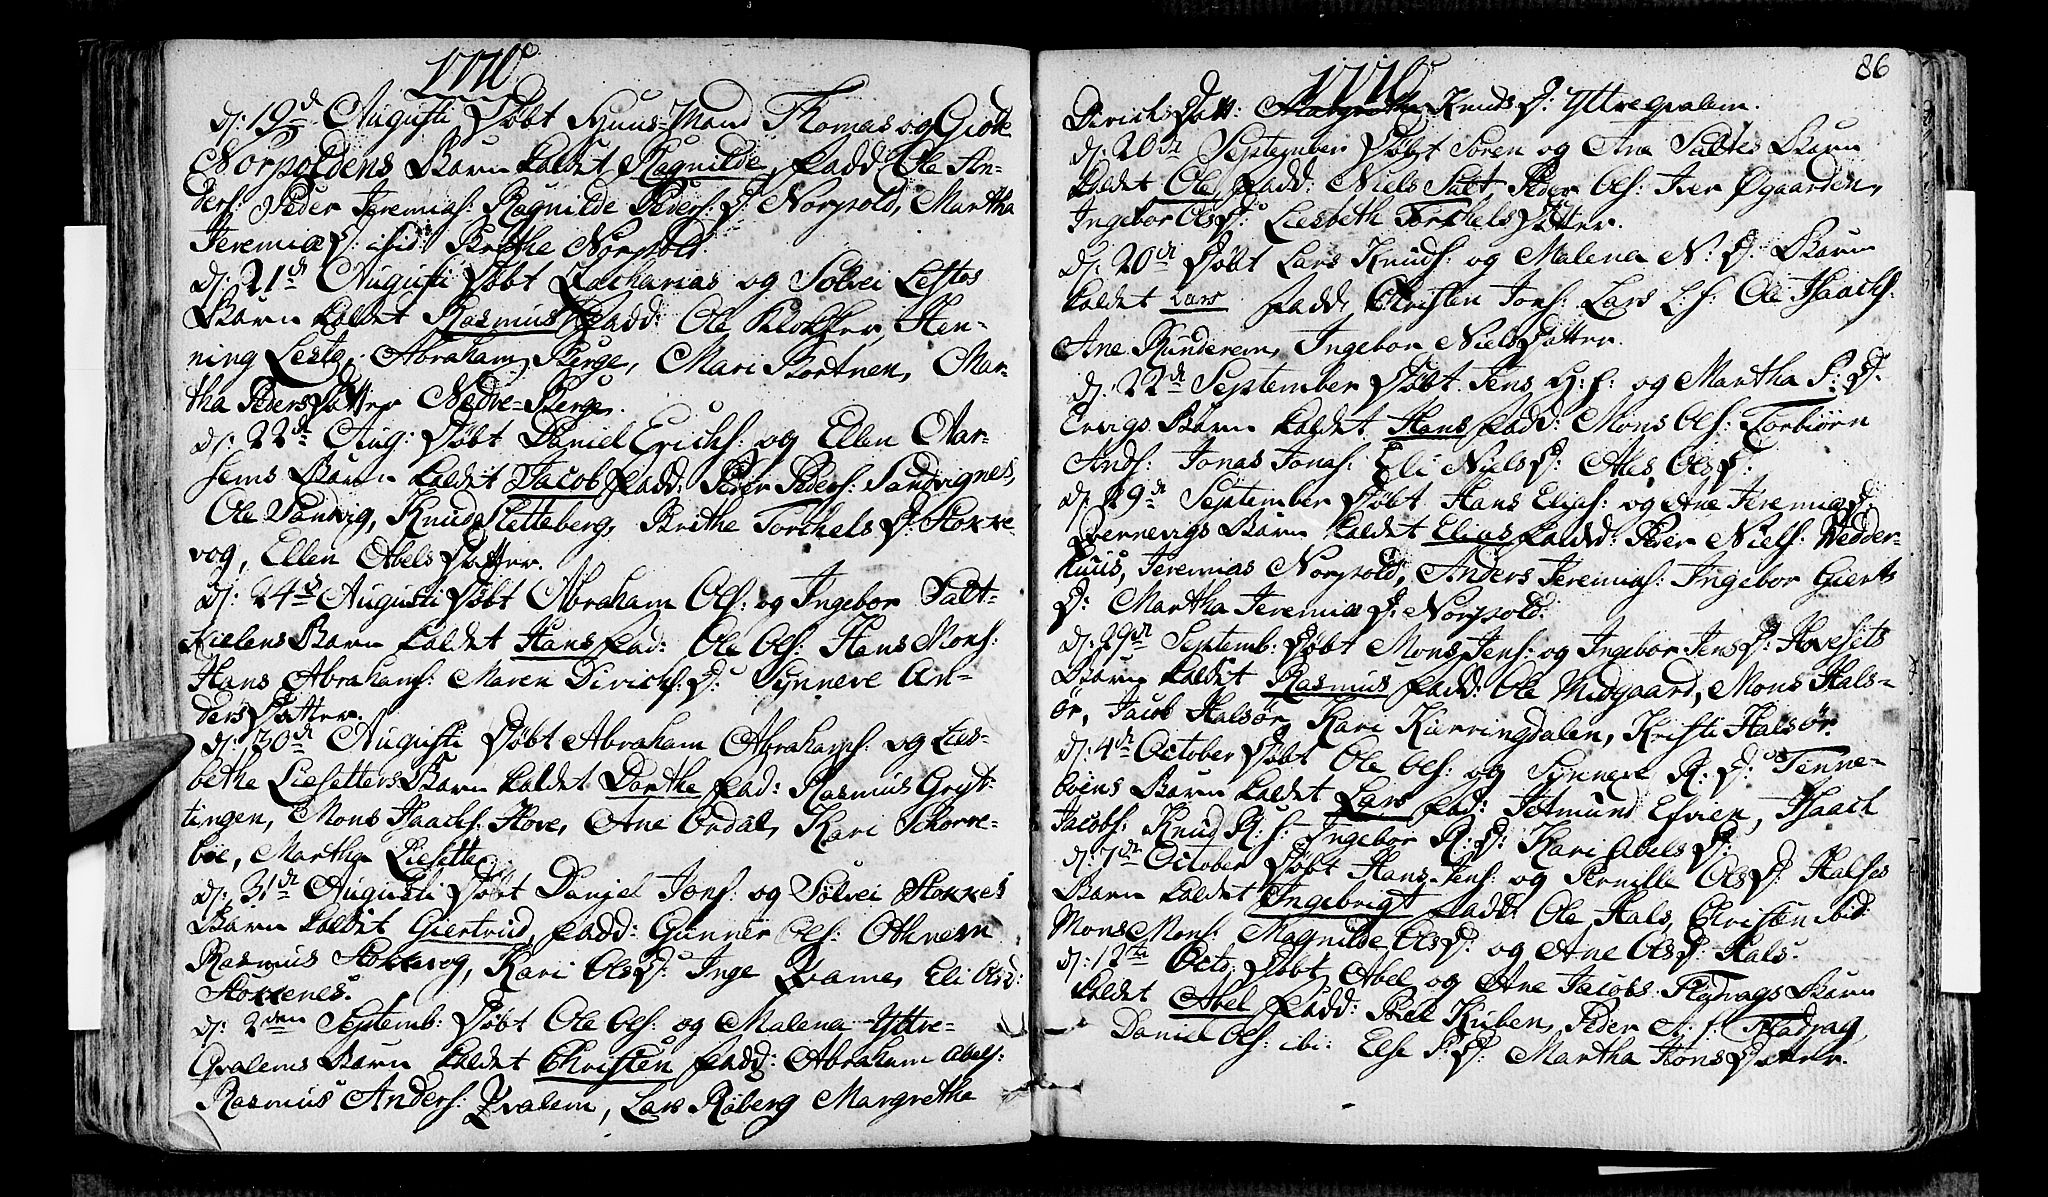 1770
dj: 19de Augusti Døbt Huus-Mand Thomas og
Norpoldens Barn kaldet Ragnilde, fadd: Ole An-
ders: Peder Jeremias: Ragnilde Peders: D: Norpold, Martha
Jeremiæ D: ibid: Brithe Norpold.
dj: 21de Augusti Døbt Zacharias og Solvei Lestes
Barn kaldet Rasmus fadd: Ole Klokker, Hen-
ning Leste, Abraham Berge, Mari Bortnen, Mar-
tha PedersDatter Nedre-Berge.
dj: 22de Aug: Døbt Daniel Erichs: og Ellen Aar-
sems Barn kaldet Jacob fadd: Peder Peders: Sandvignes,
Ole Sandvig, Knud Sletteberg, Brithe Torchels D: Stokke-
vog, Ellen AbelsDatter.
dj: 24de Augusti Døbt Abraham Ols: og Ingebor Salt-
kielens Barn kaldet Hans fad: Ole Ols: Hans Mons:
Hans Abrahams: Maren Dirichs: D: Synneve An-
dersDatter.
dj: 30de Augusti Døbt Abraham Abrahams: og Lies-
bethe Liesetters Barn kaldet Dorthe fad: Rasmus Gryt-
tingen, Mons Isaachs: Hove, Ane Ordal, Kari Schorre-
bøe, Martha Liesette.
dj: 31de Augusti Døbt Daniel Jons: og Sølvei Stokkes
Barn kaldet Giertrud, fadd: Gunner Ols: Othnem
Rasmus Stokkevog, Kari Ols D: Inge Qvame, Eli Ols D:
Stokkenes.
dj: 2den Septemb: Døbt Ole Ols: og Malena Yttre-
Qvalems Barn kaldet Christen fadd: Abraham Abels:
Rasmus Anders: Qvalem, Lars Røberg Margrethe
86
1770
Dirichs Datt: Margrethe Knuds D: Yttreqvalem.
dj: 20de September Døbt Søren og Ane Saltes Barn
kaldet Ole, fadd: Niels Salt, Peder Ols: Iver Øgaarden,
Ingebor Ols D: Liesbeth TorchelsDatter.
dj. 20de Døbt Lars Knuds: og Malena N: D: Barn
kaldet Lars fadd, Christen Jons: Lars L: s: Ole Isaachs:
Ane Runderem, Ingebor NielsDatter.
dj. 22de September Døbt Jens H: s: og Martha P: D.
Ervigs Barn kaldet Hans fadd: Mons Ols: Torbiørn
Ands: Jonas Jonas: Eli Niels D: Ales Ols D:
dj. 29de September Døbt Hans Elias: og Ane Jeremiæ D.
Qvernevigs Barn kaldet Elias fadd: Peder Niels: Wedder-
huus, Jeremias Norpold, Anders Jeremias: Ingebor Gierts
D: Martha Jeremiæ D: Norpold.
dj: 29de Septemb: Døbt Mons Jens: og Ingebor Jens D: Hovesets
Barn kaldet Rasmus fadd: Ole Midgaard, Mons Hals-
ør, Jacob Halsør, Kari Kierringdalen, Kristi Halsør.
dj: 4de October Døbt Ole Ols: og Synneve R: D: Tenne-
bøens Barn kaldet Lars fad: Jetmund Efvien, Isaach
Jacobs: Knud R: s: Ingebor R: D: Kari Abels D:
dj: 7de October Døbt Hans Jens: og Pernille Ols D: Halses
Barn kaldet Ingebrigt fadd: Ole Hals, Christen ibid:
Mons Mons: Magnilde Ols D: og Ane Ols D: Hals.
dj: 12te Octo: Døbt Abel og Ane Jacobs Fladvags Barn
kaldet Abel fadd: Kuben, Peder A: s: Fladvag
Daniel Ols: ibi: Else P: D: Martha HansDatter.